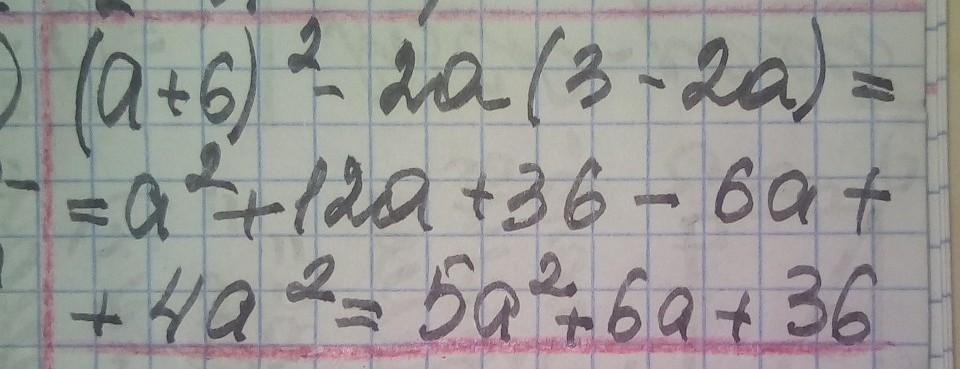 (a+6)² - 2a(3-2a) =
= a² + 12a + 36 - 6a +
+ 4a² = 5a² + 6a + 36